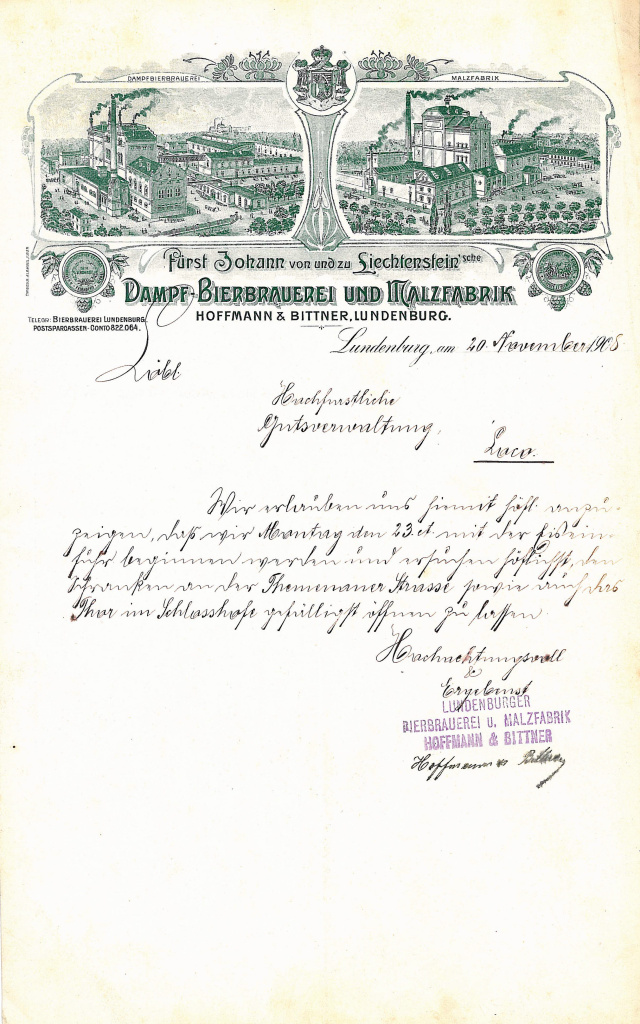 DAMPFBIERBRAUEREI
MALZFABRIK
Fürst Johann von und zu Liechtenstein'sche
DAMPF-BIERBRAUEREI UND MALZFABRIK
HOFFMANN & BITTNER, LUNDENBURG.
TELEGR: BIERBRAUEREI LUNDENBURG.
POSTSPARCASSEN-CONTO 822.064.
Lundenburg, am 20. November 1908.
Löbl
Hochfürstliche
Gutsverwaltung,
Loco.
Wir erlauben uns hiemit höfl. anzu-
zeigen, daß wir Montag den 23. ct mit der Eisein-
fuhr beginnen werden und ersuchen höflichst, den
Schranken an der Themenauer Strasse sowie auch das
Thor im Schlosshofe gefälligst öffnen zu lassen.
Hochachtungsvoll
&
Ergebenst
LUNDENBURGER
BIERBRAUEREI U. MALZFABRIK
HOFFMANN & BITTNER
Hoffmann & Bittner